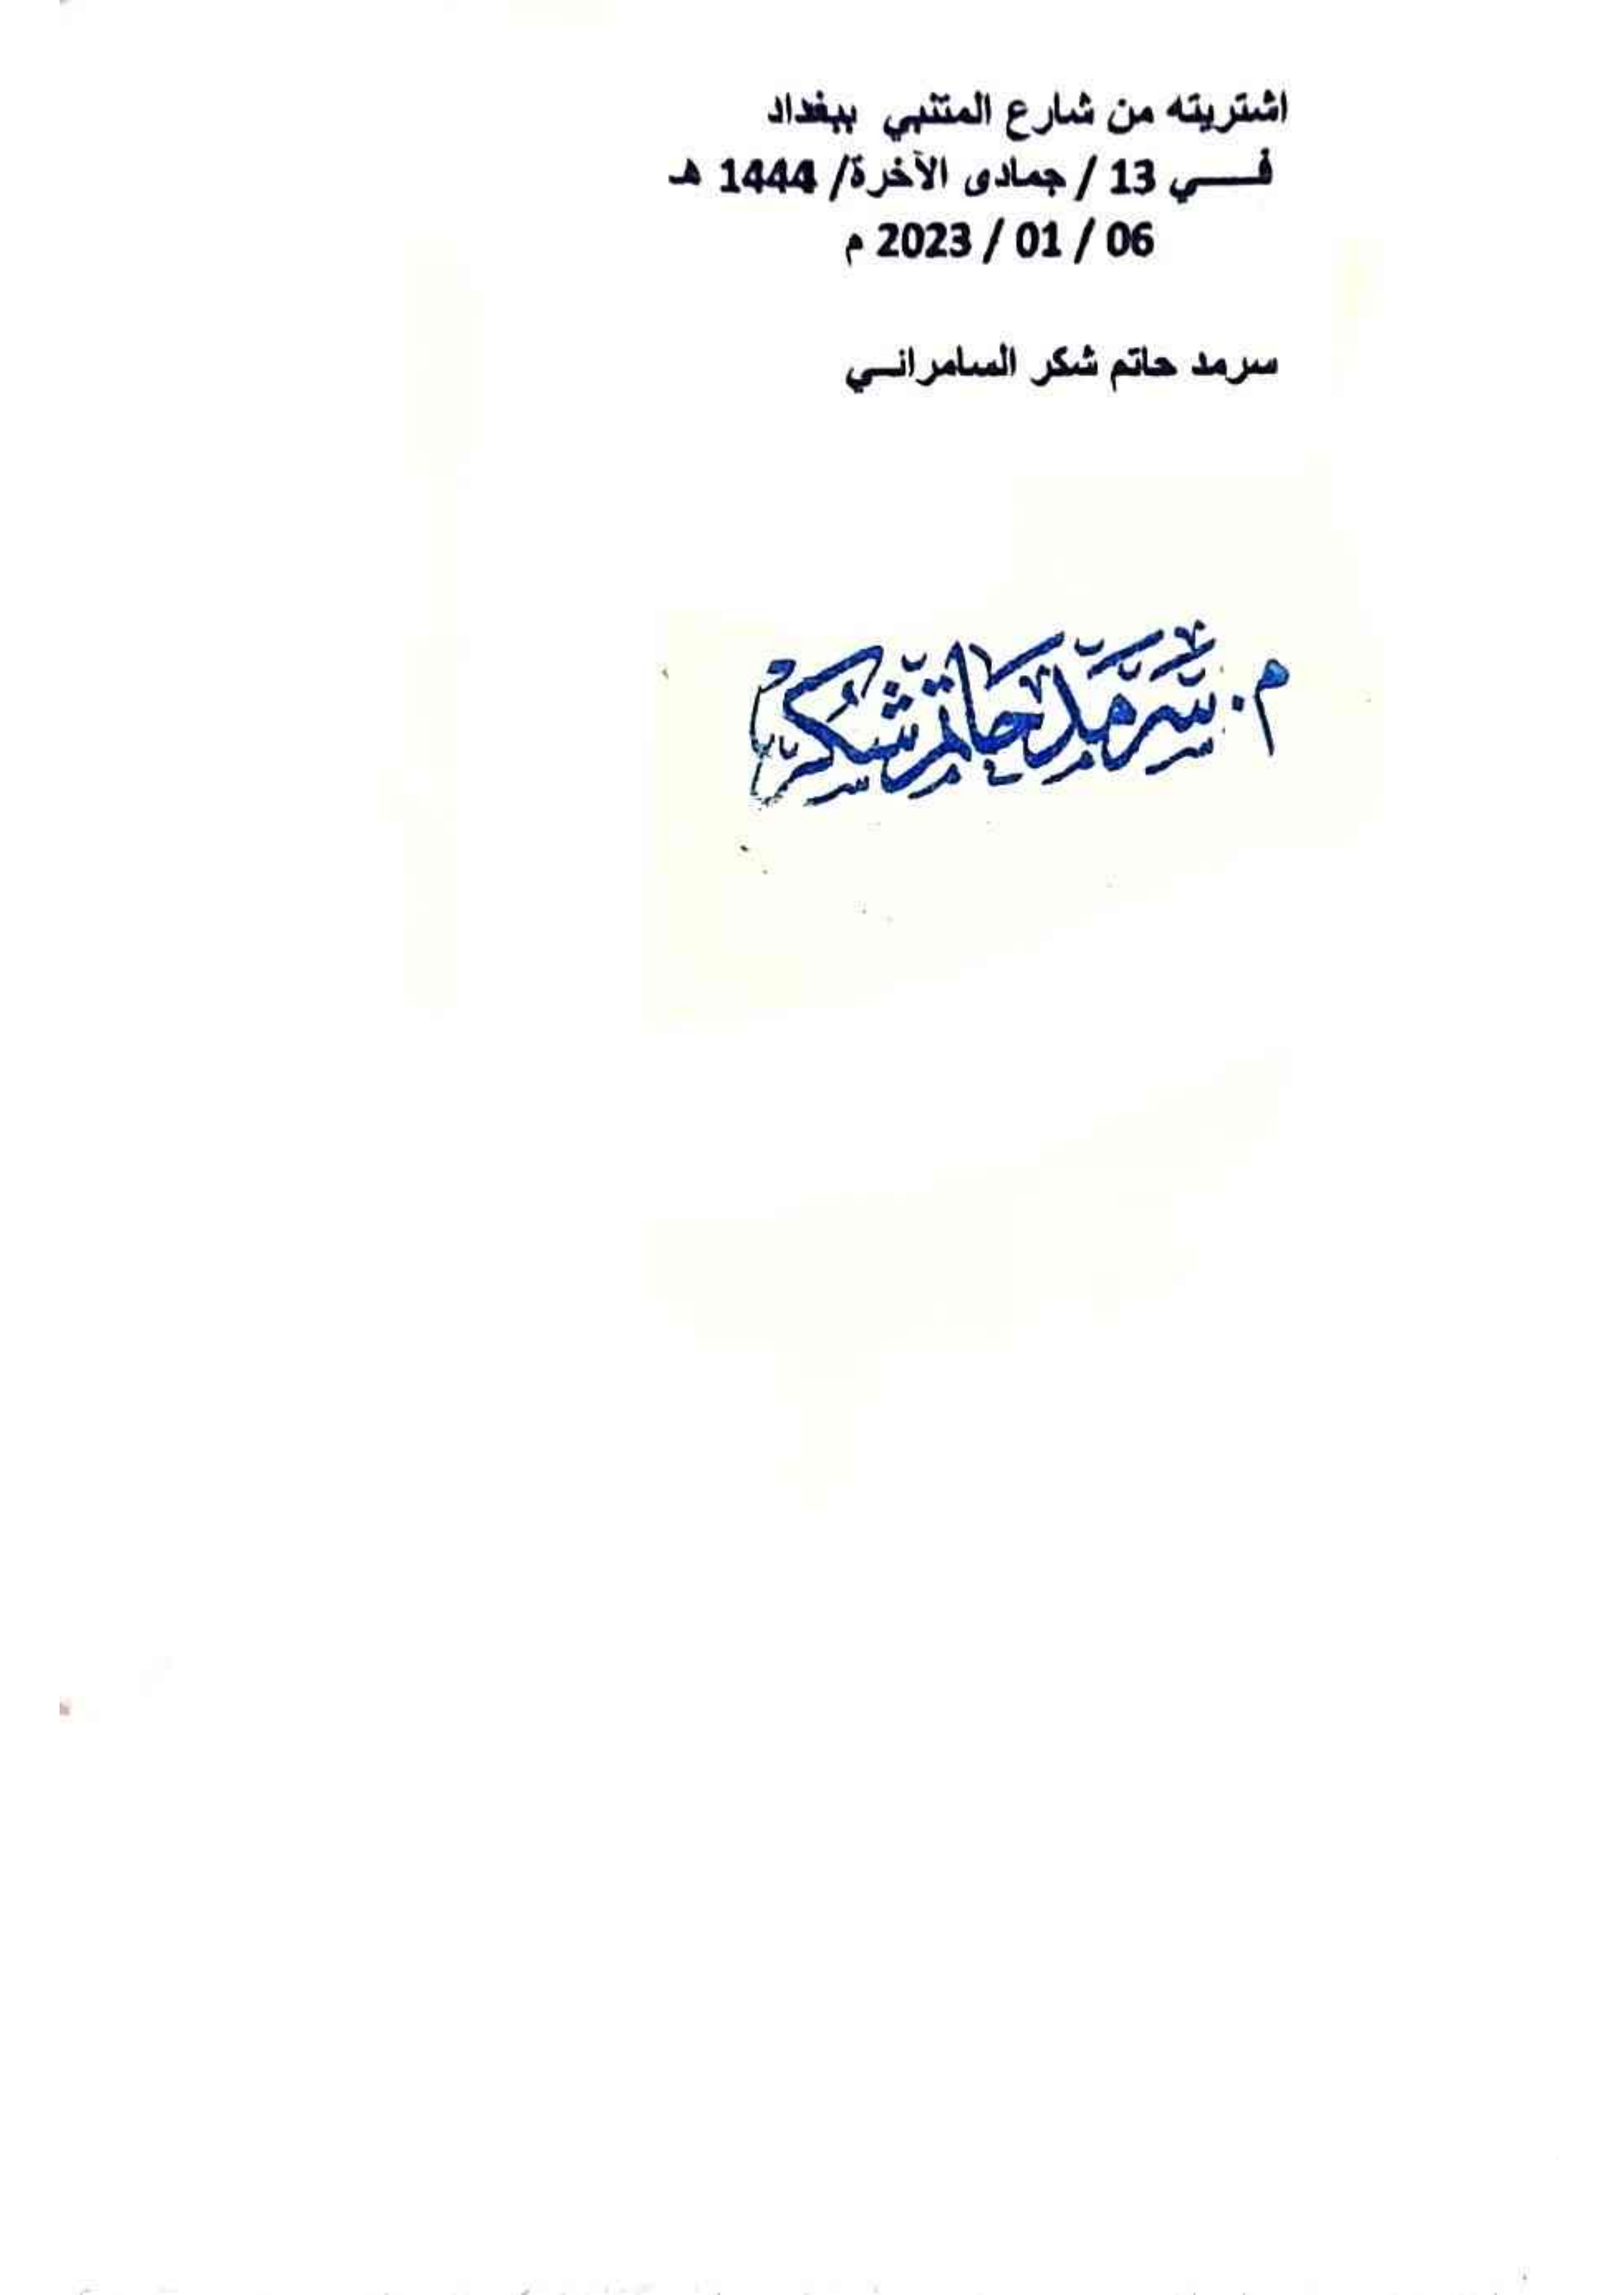 اشتريته من شارع المتنبي ببغداد
فـــــي 13 / جمادى الآخرة/ 1444 هـ
06 / 01 / 2023 م
سرمد حاتم شكر السامرائـــي
م. سَرمَد حَاتم شُكر